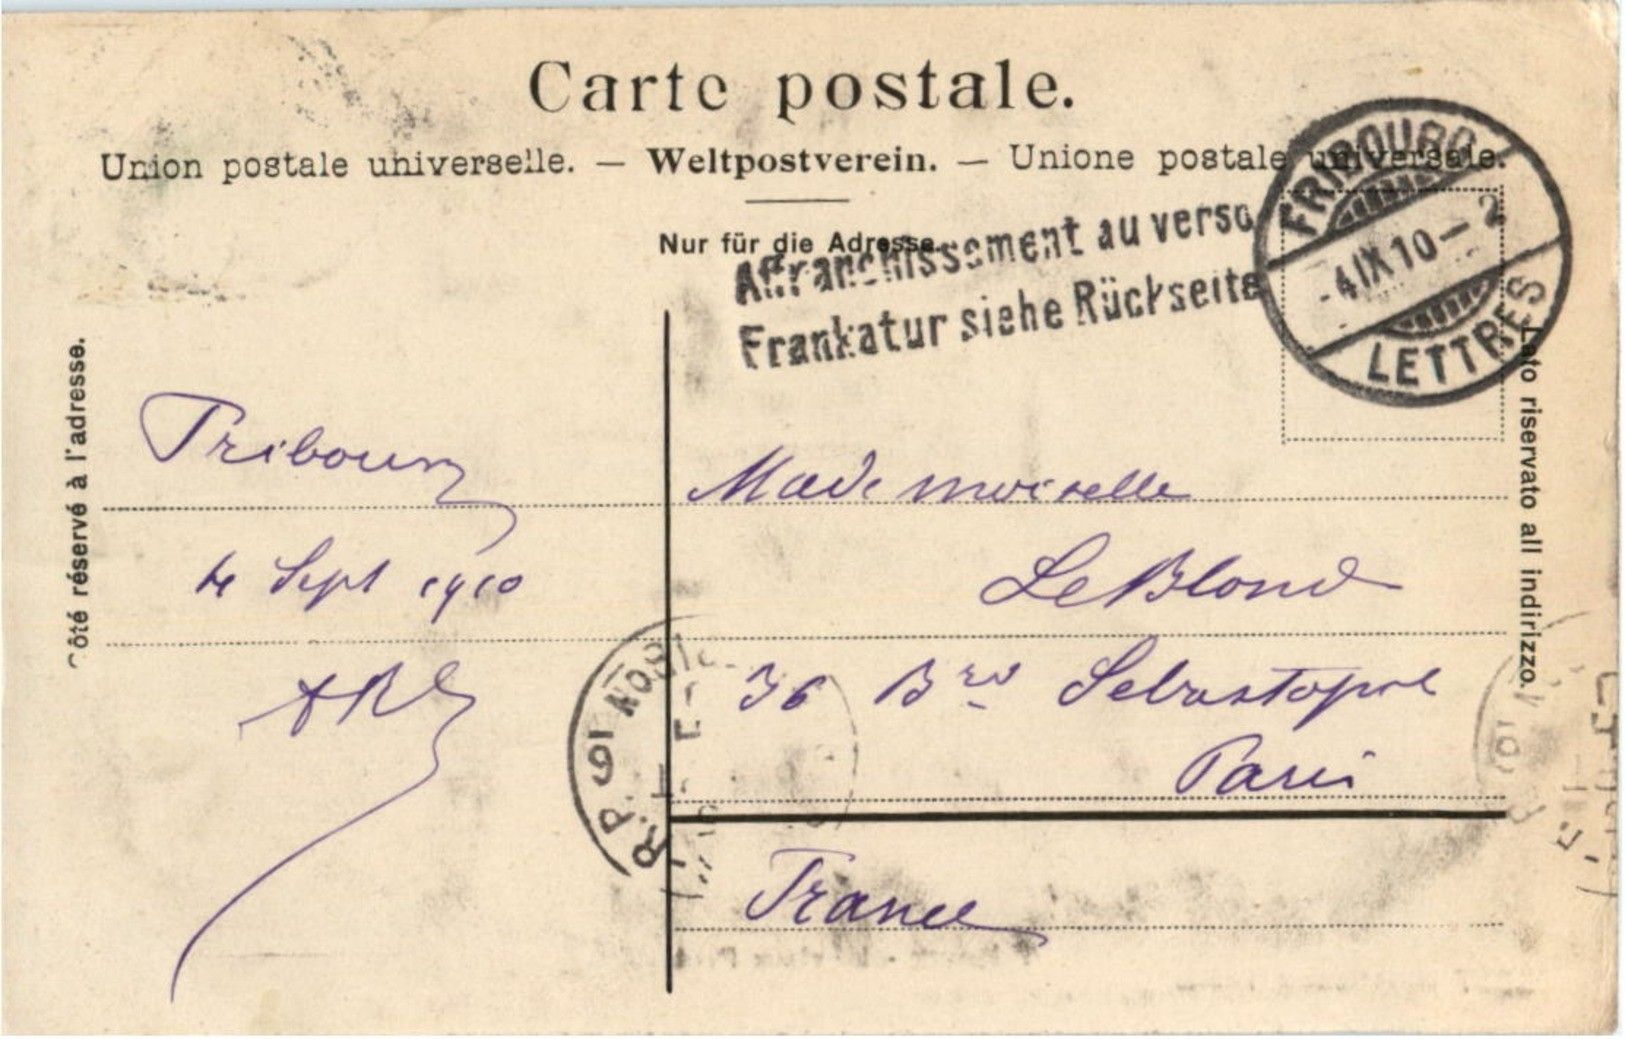 Carte postale.
Union postale universelle. — Weltpostverein. — Unione postale universale.
Nur für die Adresse.
Affranchissement au verso
Frankatur siehe Rückseite
FRIBOURG
-4 IX 10 — 2
LETTRES
Côté réservé à l'adresse.
Lato riservato all indirizzo.
Fribourg
4 Sept 1910
Mademoiselle
LeBlond
36 Bvd Sebastopol
Paris
France
R.P.